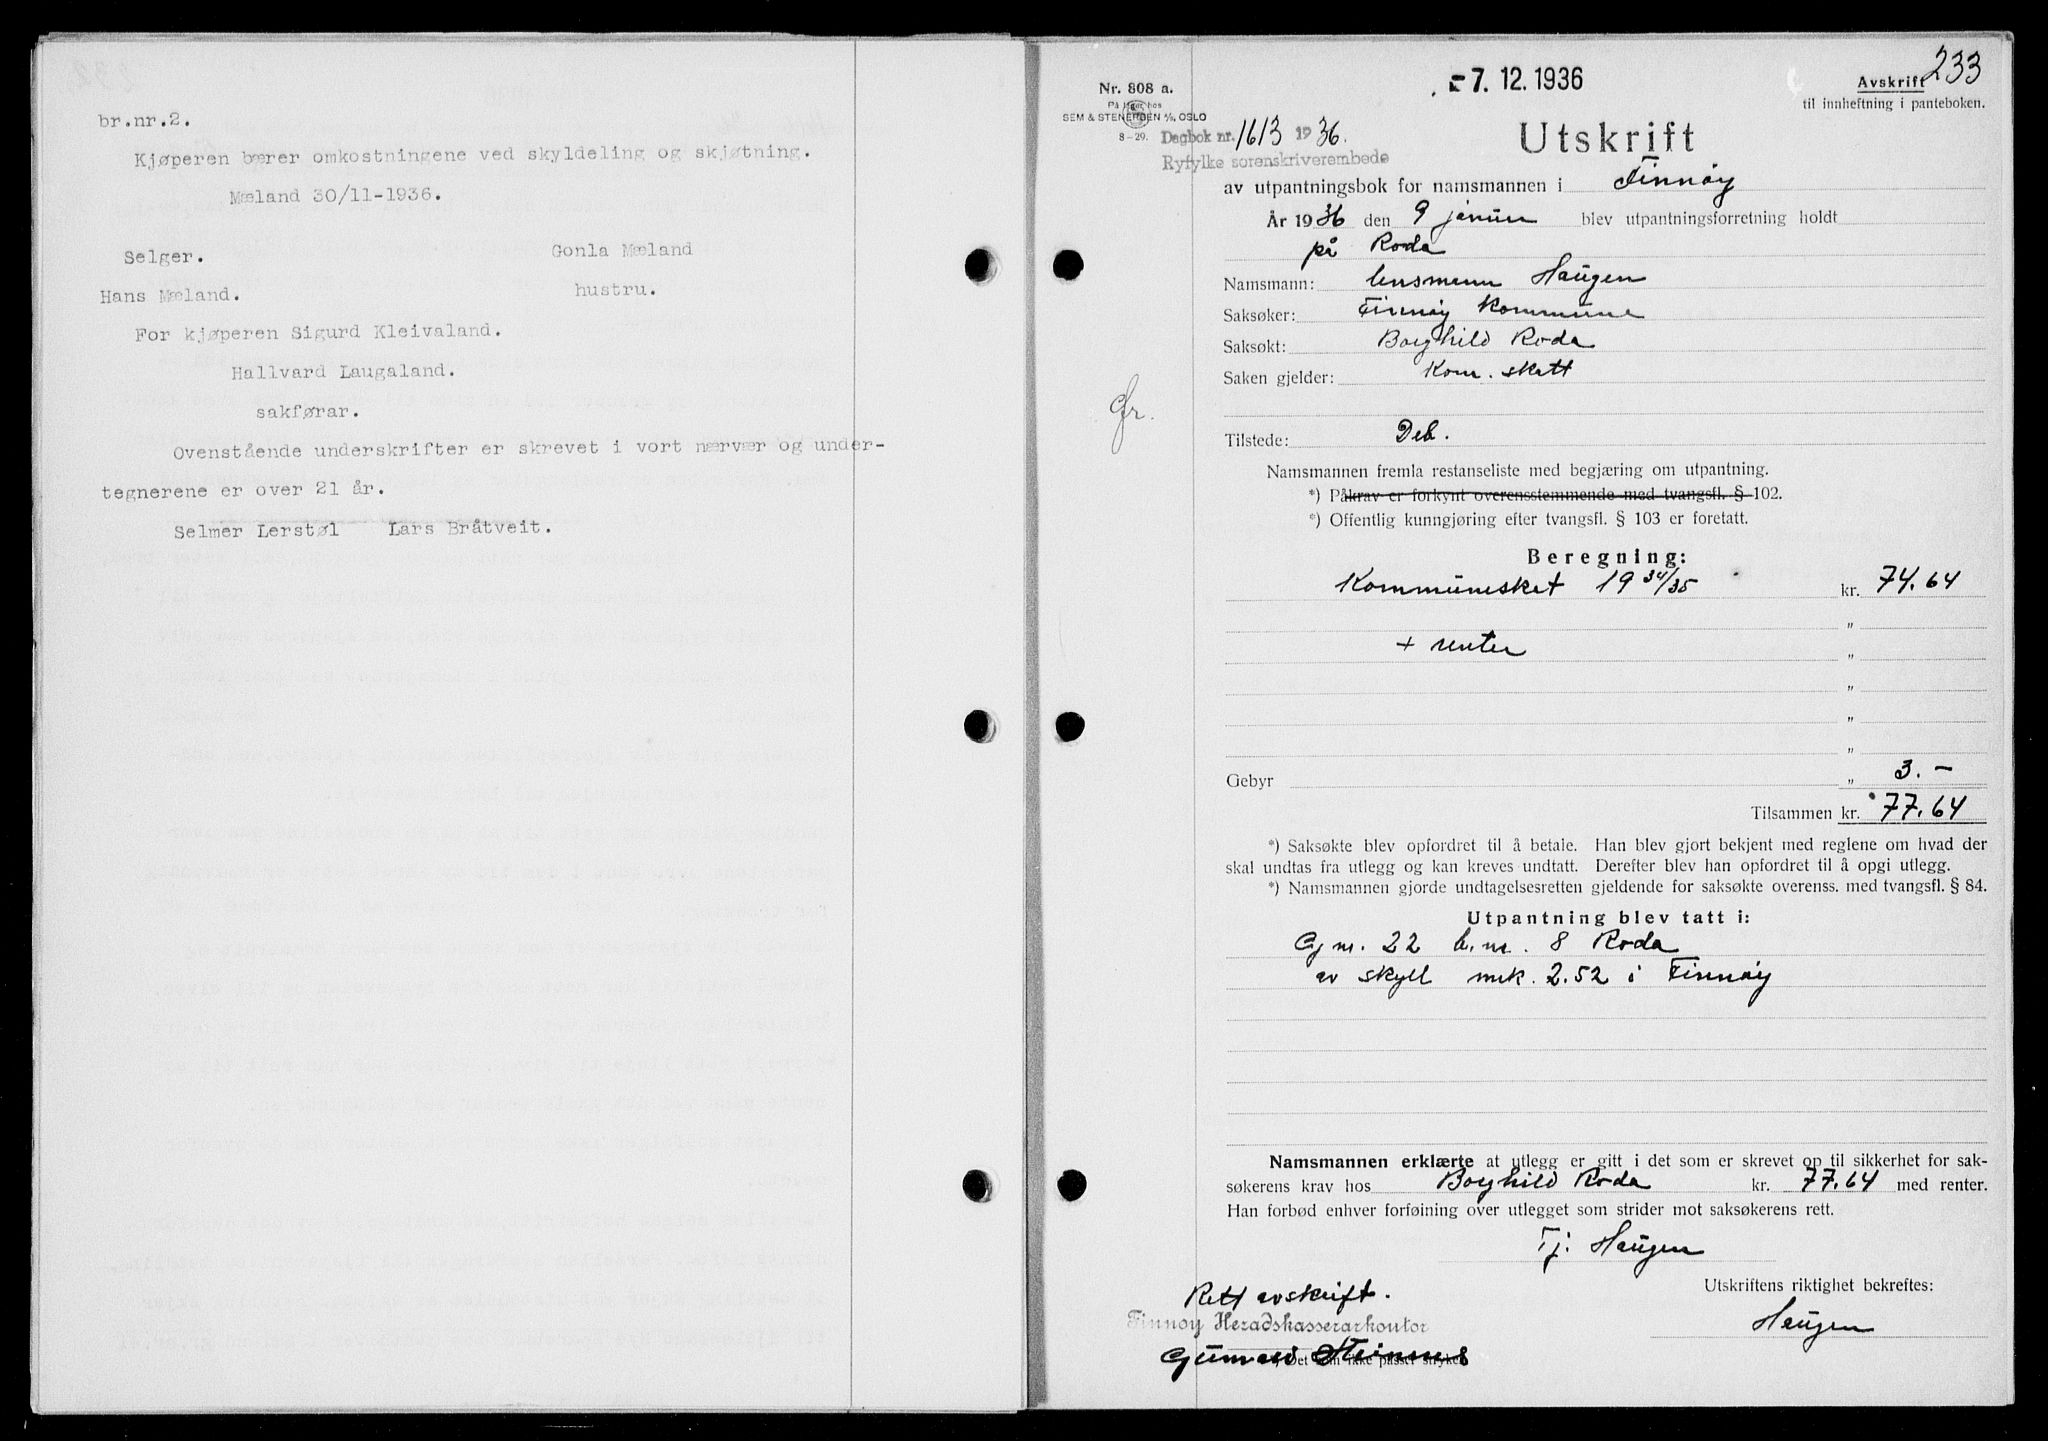 br.nr.2.
Kjøperen bærer omkostningene ved skyldeling og skjøtning.
Mæland 30/11-1936.
Selger. Gonla Mæland
Hans Mæland. hustru.
For kjøperen Sigurd Kleivaland.
Hallvard Laugaland.
sakførar.
Ovenstående underskrifter er skrevet i vort nærvær og under-
tegnerene er over 21 år.
Selmer Lerstøl Lars Bråtveit.
233
Nr. 808 a.
På lager hos
SEM & STENERSEN A/S, OSLO
8-29.
-7. 12. 1936
Avskrift
til innheftning i panteboken.
Dagbok nr. 1613 1936.
Ryfylke sorenskriverembede
Utskrift
av utpantningsbok for namsmannen i Finnøy
År 1936 den 9 januar blev utpantningsforretning holdt
på Roda
Namsmann: lensmann Haugen
Saksøker: Finnøy Kommune
Saksøkt: Borghild Roda
Saken gjelder: Kom. skatt
Gr.
Tilstede: Deb.
Namsmannen fremla restanseliste med begjæring om utpantning.
*) Påkrav er forkynt overensstemmende med tvangsfl. § 102.
*) Offentlig kunngjøring efter tvangsfl. § 103 er foretatt.
Beregning:
Kommuneskat 1934/35 kr. 74.64
"
+ renter "
"
"
"
Gebyr " 3.-
Tilsammen kr. 77.64
*) Saksøkte blev opfordret til å betale. Han blev gjort bekjent med reglene om hvad der
skal undtas fra utlegg og kan kreves undtatt. Derefter blev han opfordret til å opgi utlegg.
*) Namsmannen gjorde undtagelsesretten gjeldende for saksøkte overenss. med tvangsfl. § 84.
Utpantning blev tatt i:
G nr. 22 b. nr. 8 Roda
av skyll mrk. 2.52 i Finnøy
Namsmannen erklærte at utlegg er gitt i det som er skrevet op til sikkerhet for sak-
søkerens krav hos Borghild Roda kr. 77.64 med renter.
Han forbød enhver forføining over utlegget som strider mot saksøkerens rett.
Tj. Haugen
Rett avskrift.
Utskriftens riktighet bekreftes:
Finnøy Heradskasserarkontor
Haugen
*) Det som ikke passer strykes